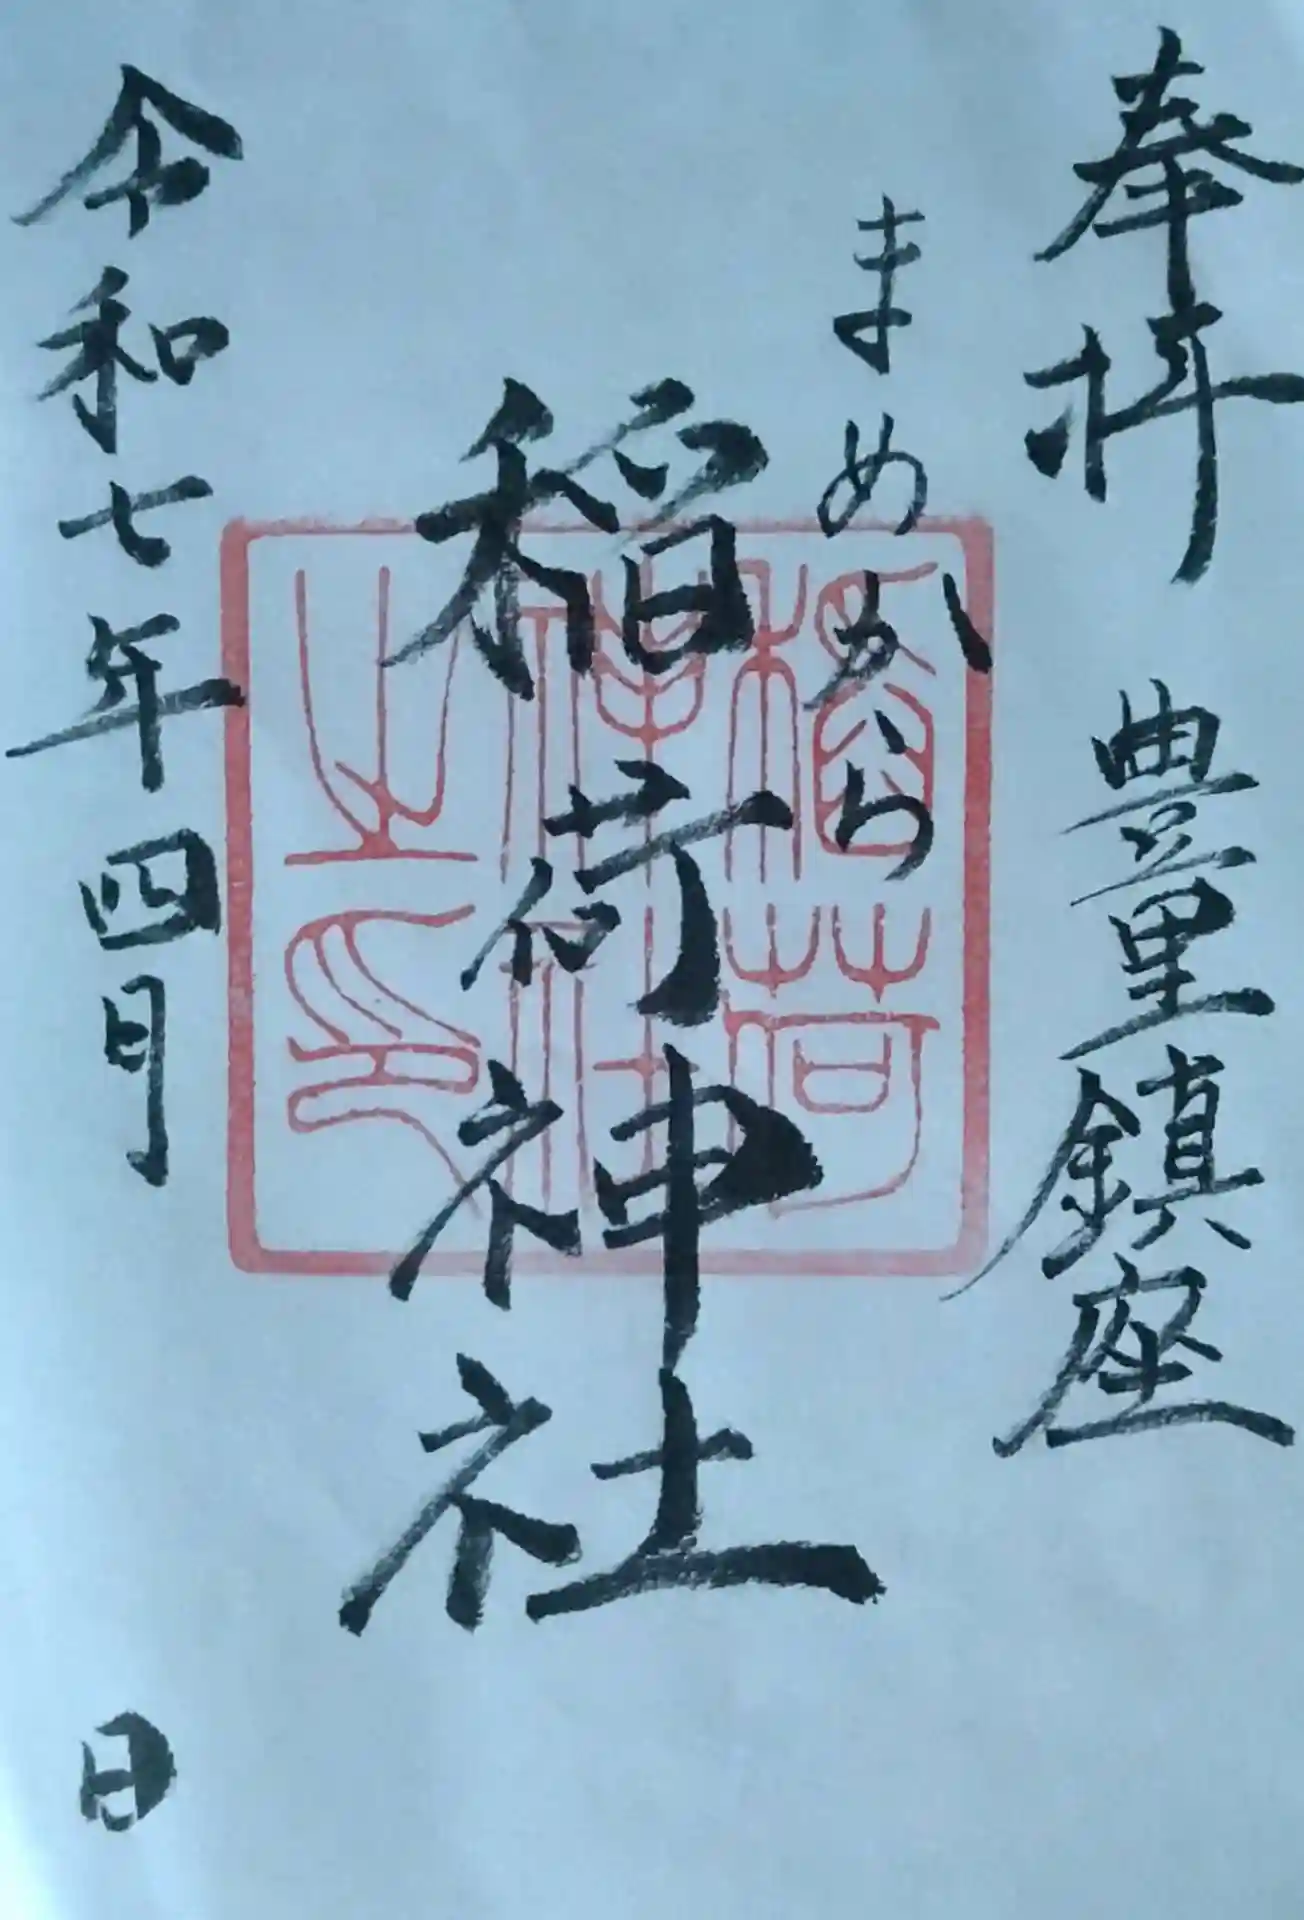 奉拝 豊里鎮座
まめがら
稲荷神社
令和七年四月 日
稲荷
神社
之印